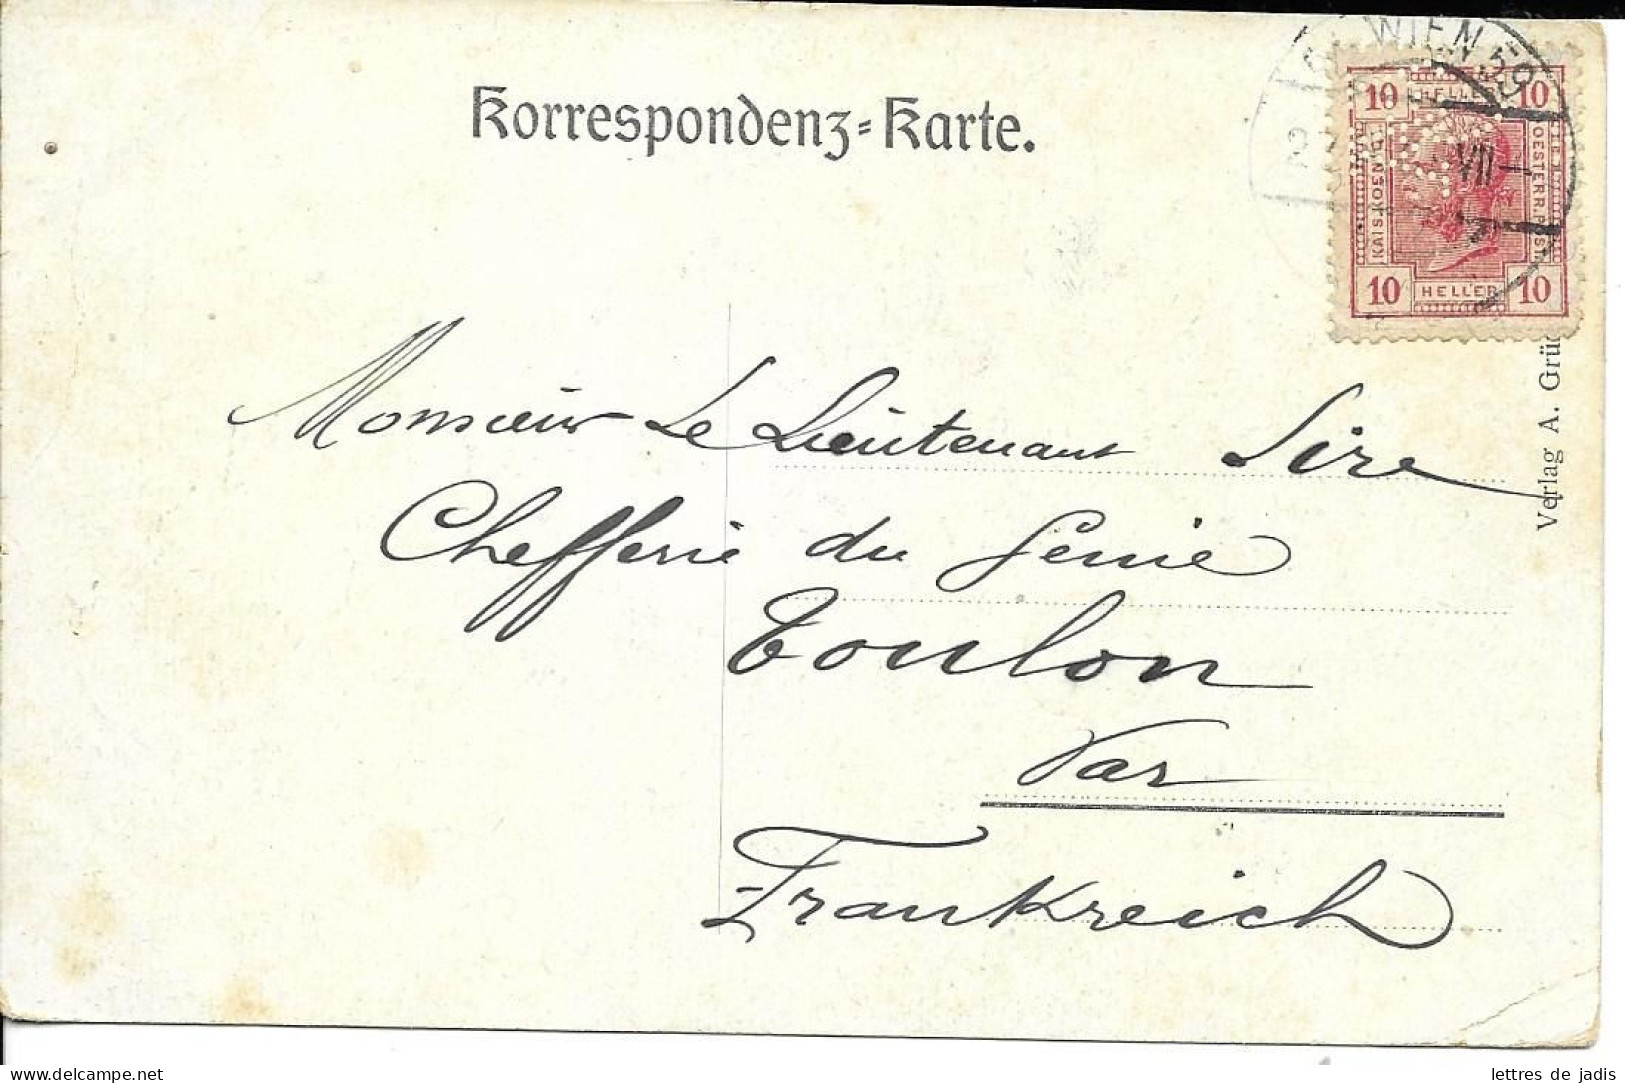 Korrespondenz-Karte.
WIEN 59
VII
10 HELLER 10
KAIS. KOENIGL.
OESTERR. POST
10 HELLER 10
Monsieur Le Lieutenant Sire
Chefferie du Génie
Toulon
Var
Frankreich
Verlag A.
www.delcampe.net
lettres de jadis